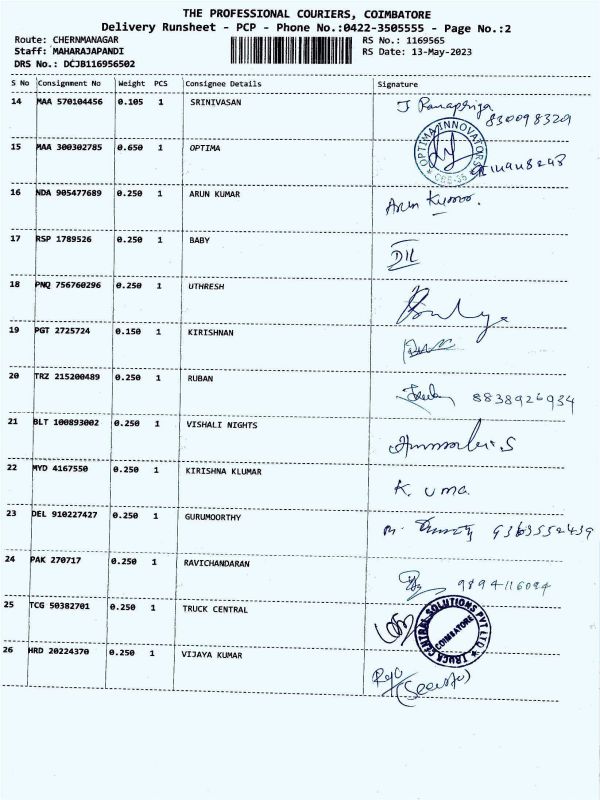 THE PROFESSIONAL COURIERS, COIMBATORE
Delivery Runsheet - PCP - Phone No.:0422-3505555 - Page No.:2
Route: CHERNMANAGAR RS No.: 1169565
Staff: MAHARAJAPANDI RS Date: 13-May-2023
DRS No.: DCJB116956502
S No Consignment No Weight PCS Consignee Details Signature
14 MAA 570104456 0.105 1 SRINIVASAN
8300983209
15 MAA 300302785 0.650 1 OPTIMA OPTIMA INNOVATORS
16 NDA 905477689 0.250 1 ARUN KUMAR Arun Kumar.
17 RSP 1789526 0.250 1 BABY
18 PNQ 756760296 0.250 1 UTHRESH
19 PGT 2725724 0.150 1 KIRISHNAN
20 TRZ 215200489 0.250 1 RUBAN 8838926934
21 BLT 100893002 0.250 1 VISHALI NIGHTS
22 MYD 4167550 0.250 1 KIRISHNA KLUMAR K. uma.
23 DEL 910227427 0.250 1 GURUMOORTHY 9363552439
24 PAK 270717 0.250 1 RAVICHANDARAN 9894116084
25 TCG 50382701 0.250 1 TRUCK CENTRAL TRUCK CENTRAL SOLUTIONS PVT LTD COIMBATORE
26 HRD 20224370 0.250 1 VIJAYA KUMAR